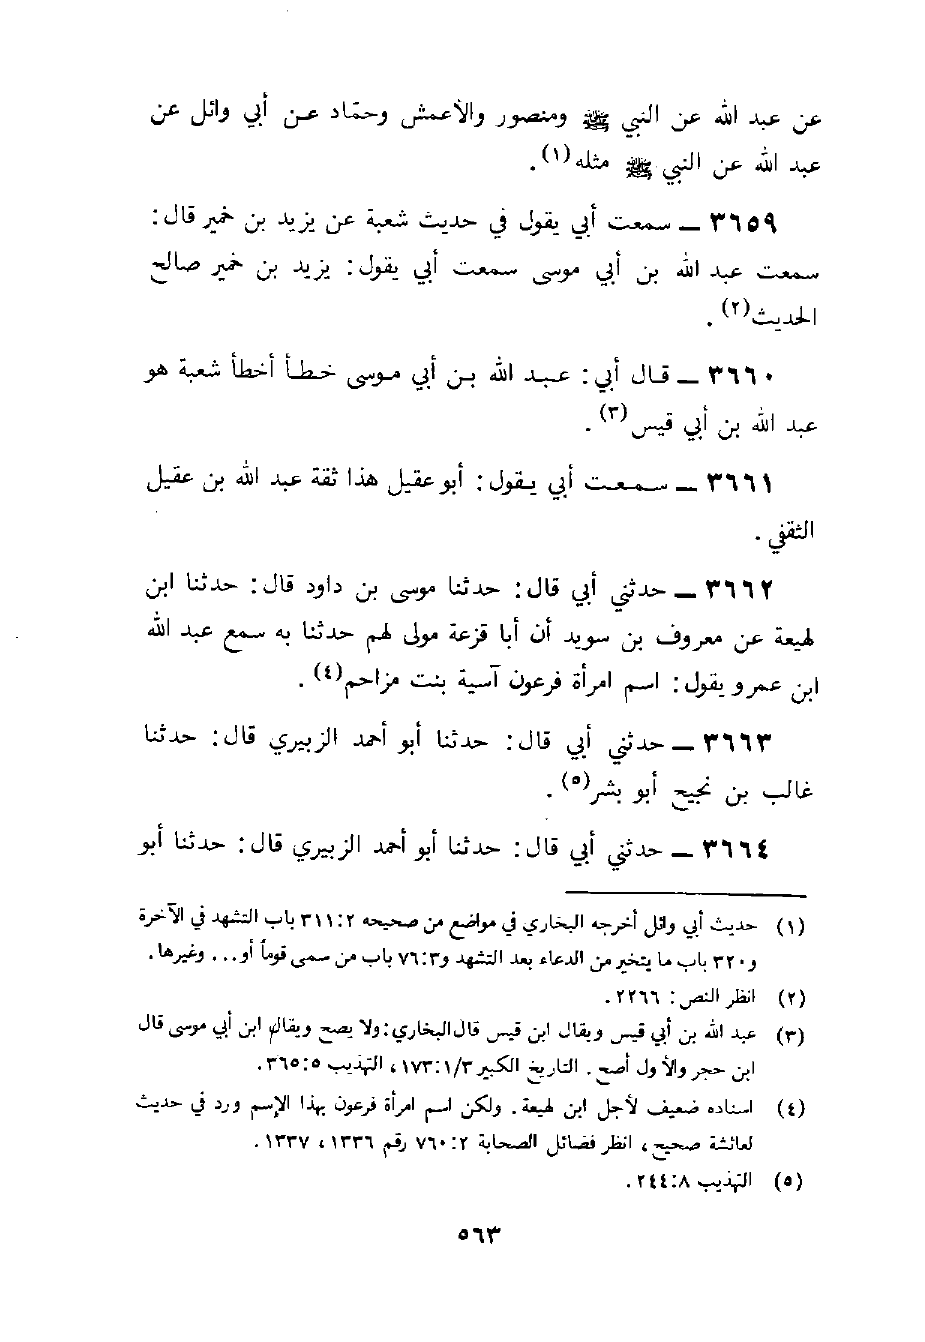 عن عبد الله عن النبي ﷺ ومنصور والأعمش وحمّاد عن أبي وائل عن
عبد الله عن النبي ﷺ مثله(١).
٣٦٥٩ ــ سمعت أبي يقول في حديث شعبة عن يزيد بن خمير قال:
سمعت عبد الله بن أبي موسى سمعت أبي يقول: يزيد بن خمير صالح
الحديث(٢).
٣٦٦٠ ــ قال أبي: عبد الله بن أبي موسى خطأ أخطأ شعبة هو
عبد الله بن أبي قيس(٣).
٣٦٦١ ــ سمعت أبي يقول: أبو عقيل هذا ثقة عبد الله بن عقيل
الثقفي.
٣٦٦٢ ــ حدثني أبي قال: حدثنا موسى بن داود قال: حدثنا ابن
لهيعة عن معروف بن سويد أن أبا قزعة مولى لهم حدثنا به سمع عبد الله
ابن عمرو يقول: اسم امرأة فرعون آسية بنت مزاحم(٤).
٣٦٦٣ ــ حدثني أبي قال: حدثنا أبو أحمد الزبيري قال: حدثنا
غالب بن نجيح أبو بشر(٥).
٣٦٦٤ ــ حدثني أبي قال: حدثنا أبو أحمد الزبيري قال: حدثنا أبو
(١) حديث أبي وائل أخرجه البخاري في مواضع من صحيحه ٣١١:٢ باب التشهد في الآخرة
و٣٢٠ باب ما يتخير من الدعاء بعد التشهد و٧٦:٣ باب من سمى قوماً أو... وغيرها.
(٢) انظر النص: ٢٢٦٦.
(٣) عبد الله بن أبي قيس ويقال ابن قيس قال البخاري: ولا يصح ويقال ابن أبي موسى قال
ابن حجر والأول أصح. التاريخ الكبير ١٧٣:١/٣، التهذيب ٣٦٥:٥.
(٤) اسناده ضعيف لأجل ابن لهيعة. ولكن اسم امرأة فرعون بهذا الإسم ورد في حديث
لعائشة صحيح، انظر فضائل الصحابة ٧٦٠:٢ رقم ١٣٣٦، ١٣٣٧.
(٥) التهذيب ٢٤٤:٨.
٥٦٣